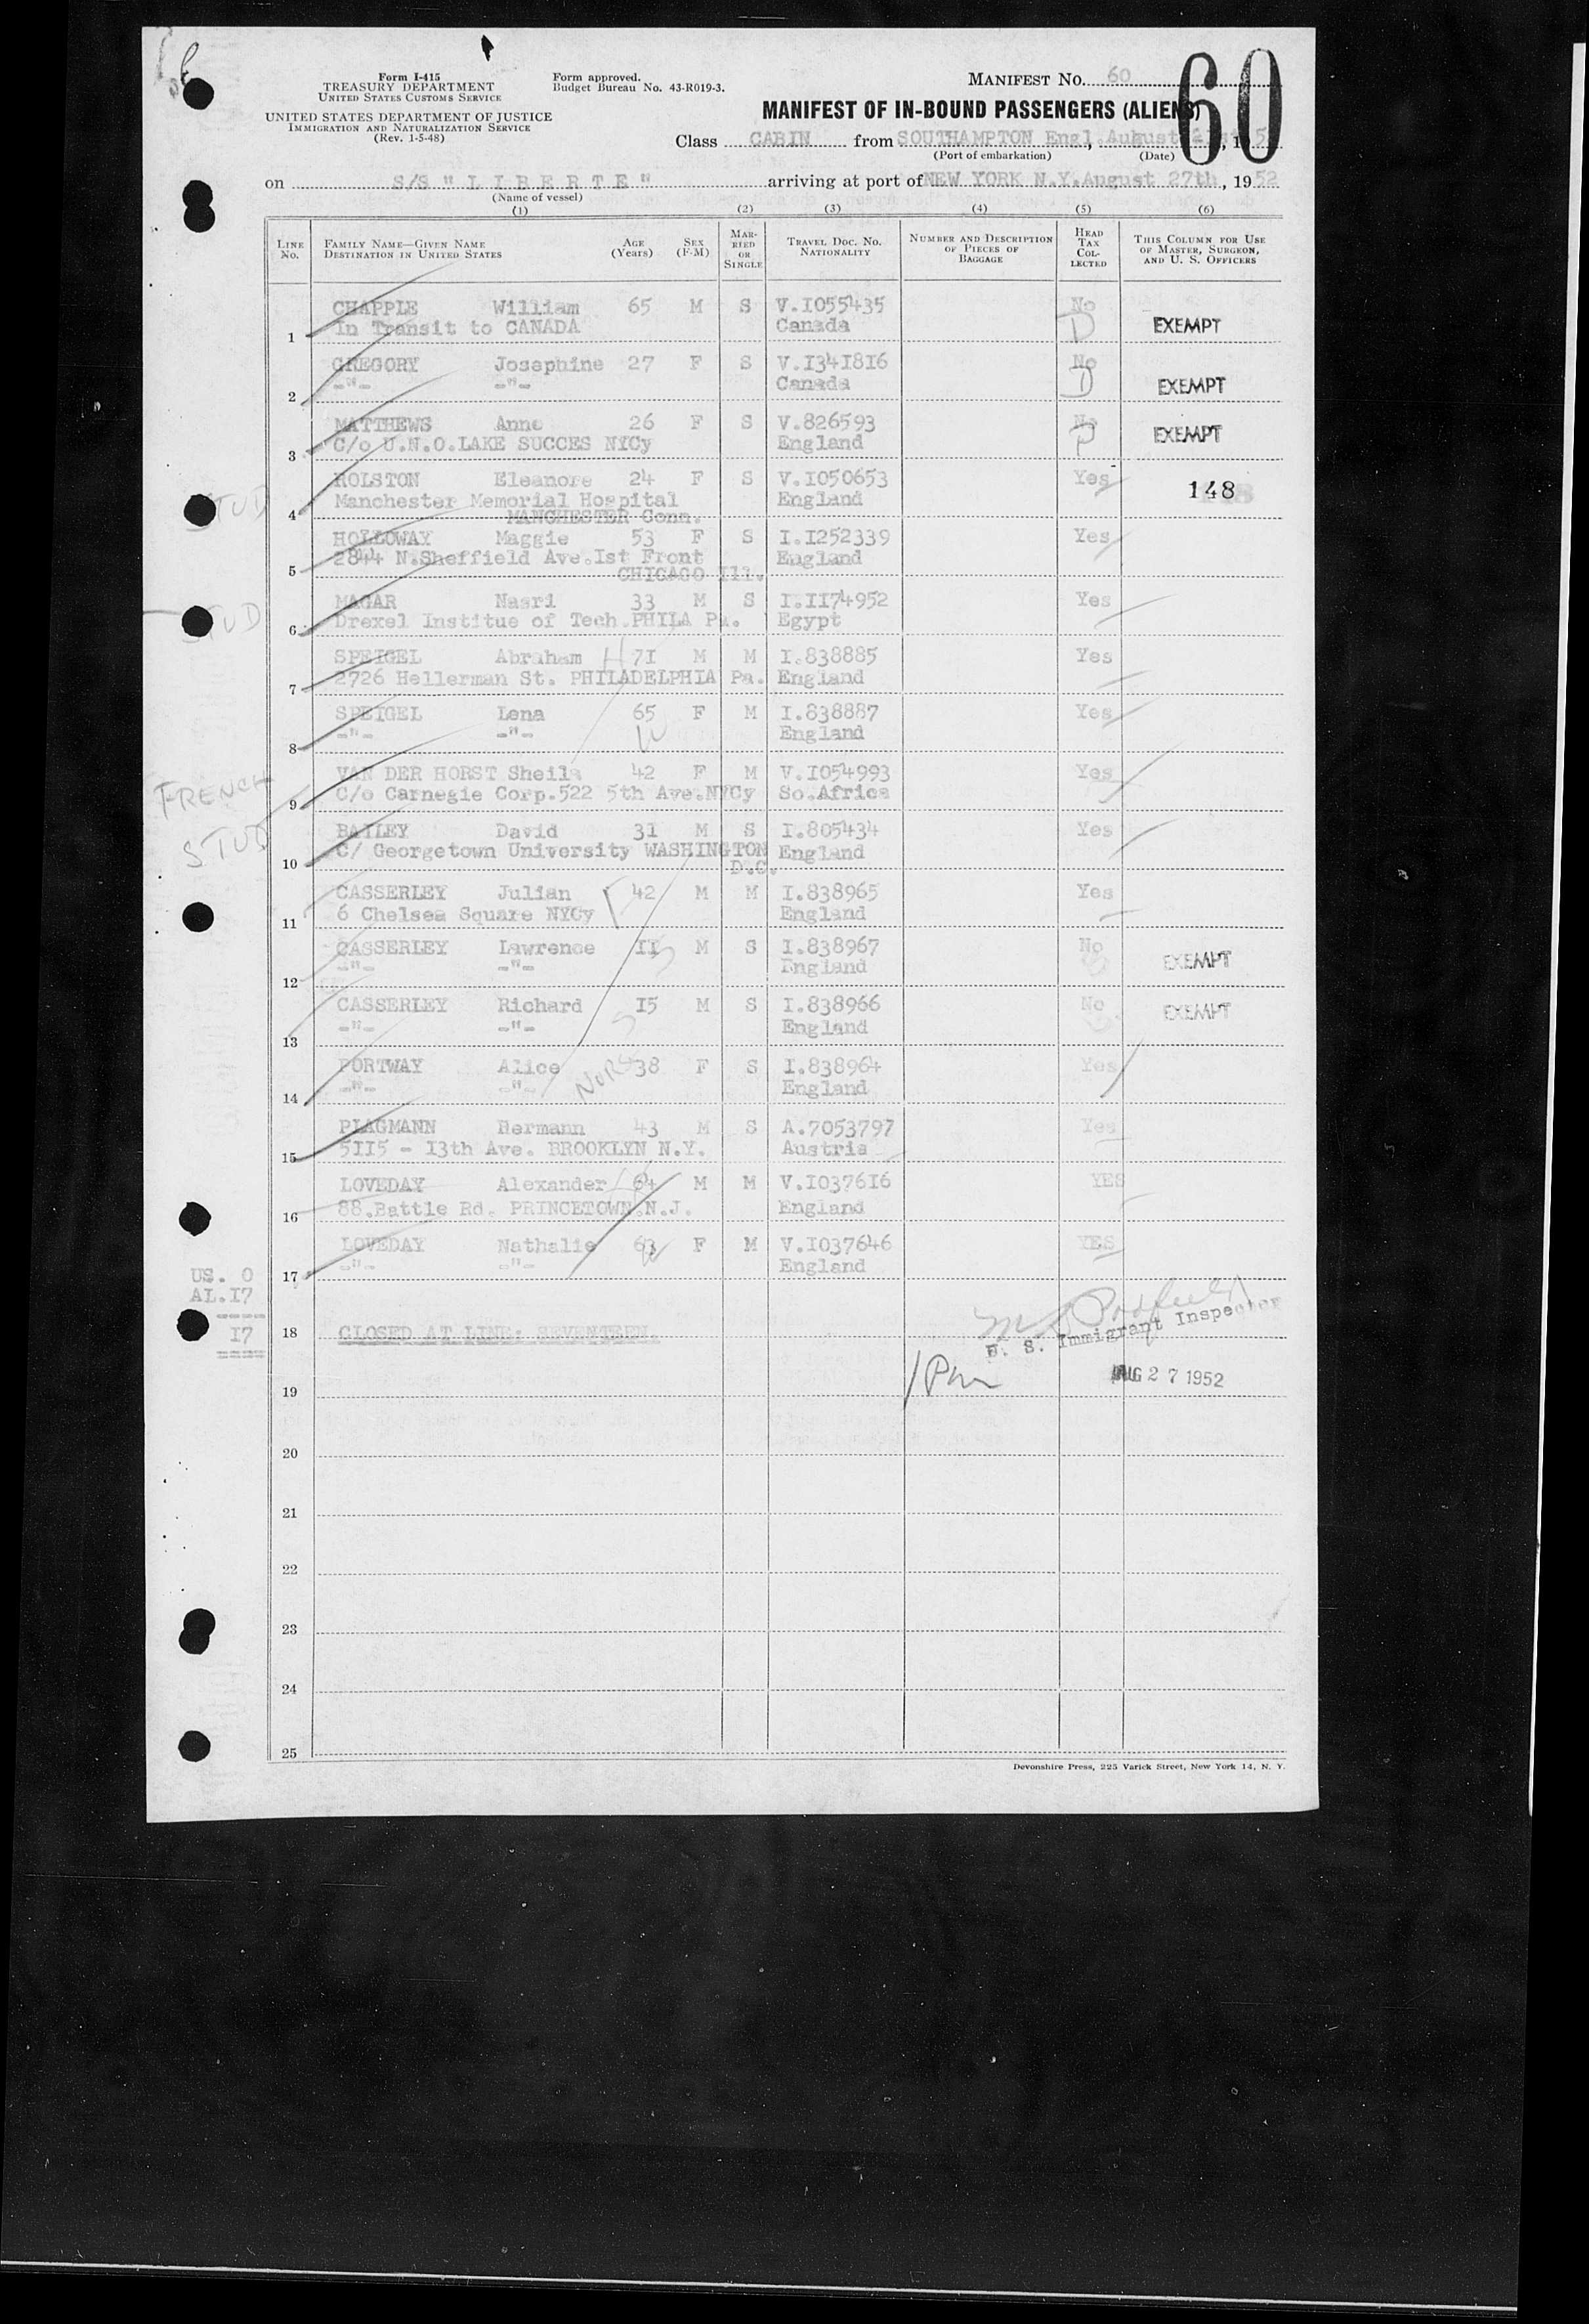 Form I-415
TREASURY DEPARTMENT
UNITED STATES CUSTOMS SERVICE
UNITED STATES DEPARTMENT OF JUSTICE
IMMIGRATION AND NATURALIZATION SERVICE
(Rev. 1-5-48)
Form approved.
Budget Bureau No. 43-R019-3.
MANIFEST NO. 60
60
MANIFEST OF IN-BOUND PASSENGERS (ALIENS)
Class CABIN from SOUTHAMPTON Engl. August 21st, 195
(Port of embarkation) (Date)
on S/S "LIBERTE" arriving at port of NEW YORK N.Y. August 27th, 1952
(Name of vessel)
(1) (2) (3) (4) (5) (6)
LINE No. FAMILY NAME—GIVEN NAME DESTINATION IN UNITED STATES AGE (Years) SEX (F-M) MARRIED OR SINGLE TRAVEL DOC. NO. NATIONALITY NUMBER AND DESCRIPTION OF PIECES OF BAGGAGE HEAD TAX COLLECTED THIS COLUMN FOR USE OF MASTER, SURGEON, AND U. S. OFFICERS
CHAPPLE William 65 M S V.I055435 No
1 In Transit to CANADA Canada D EXEMPT
GREGORY Josephine 27 F S V.I34I8I6 No
2 -"- -"- Canada D EXEMPT
MATTHEWS Anne 26 F S V.826593 No
3 C/o U.N.O.LAKE SUCCES NYCy England EXEMPT
ROLSTON Eleanore 24 F S V.I050653 Yes
STUD 4 Manchester Memorial Hospital England 148
MANCHESTER Conn.
HOLLOWAY Maggie 53 F S I.I252339 Yes
5 2844 N.Sheffield Ave.Ist Front England
CHICAGO Ill.
MAGAR Nasri 33 M S I.II74952 Yes
STUD 6 Drexel Institue of Tech.PHILA Pa. Egypt
SPEIGEL Abraham H 7I M M I.838885 Yes
7 2726 Hellerman St. PHILADELPHIA Pa. England
SPEIGEL Lena 65 F M I.838887 Yes
8 -"- -"- W England
VAN DER HORST Sheila 42 F M V.I054993 Yes
FRENCH 9 C/o Carnegie Corp.522 5th Ave.NYCy So.Africa
BAILEY David 31 M S I.805434 Yes
STUD 10 C/ Georgetown University WASHINGTON England
D.C.
CASSERLEY Julian 42 M M I.838965 Yes
11 6 Chelsea Square NYCy England
CASSERLEY Lawrence II M S I.838967 No
12 -"- -"- S England EXEMPT
CASSERLEY Richard I5 M S I.838966 No
13 -"- -"- S England EXEMPT
PORTWAY Alice 38 F S I.838964 Yes
14 -"- -"- NURSE England
PLAGMANN Hermann 43 M S A.7053797 Yes
15 5II5 - I3th Ave. BROOKLYN N.Y. Austria
LOVEDAY Alexander 64 M M V.I0376I6 YES
16 88.Battle Rd. PRINCETOWN.N.J. England
LOVEDAY Nathalie 63 F M V.I037646 YES
17 -"- -"- W England
US. 0
AL.I7
----
I7
====
18 CLOSED AT LINE: SEVENTEEN.
U. S. Immigrant Inspector
1 Pm
AUG 27 1952
19
20
21
22
23
24
25
Devonshire Press, 225 Varick Street, New York 14, N. Y.